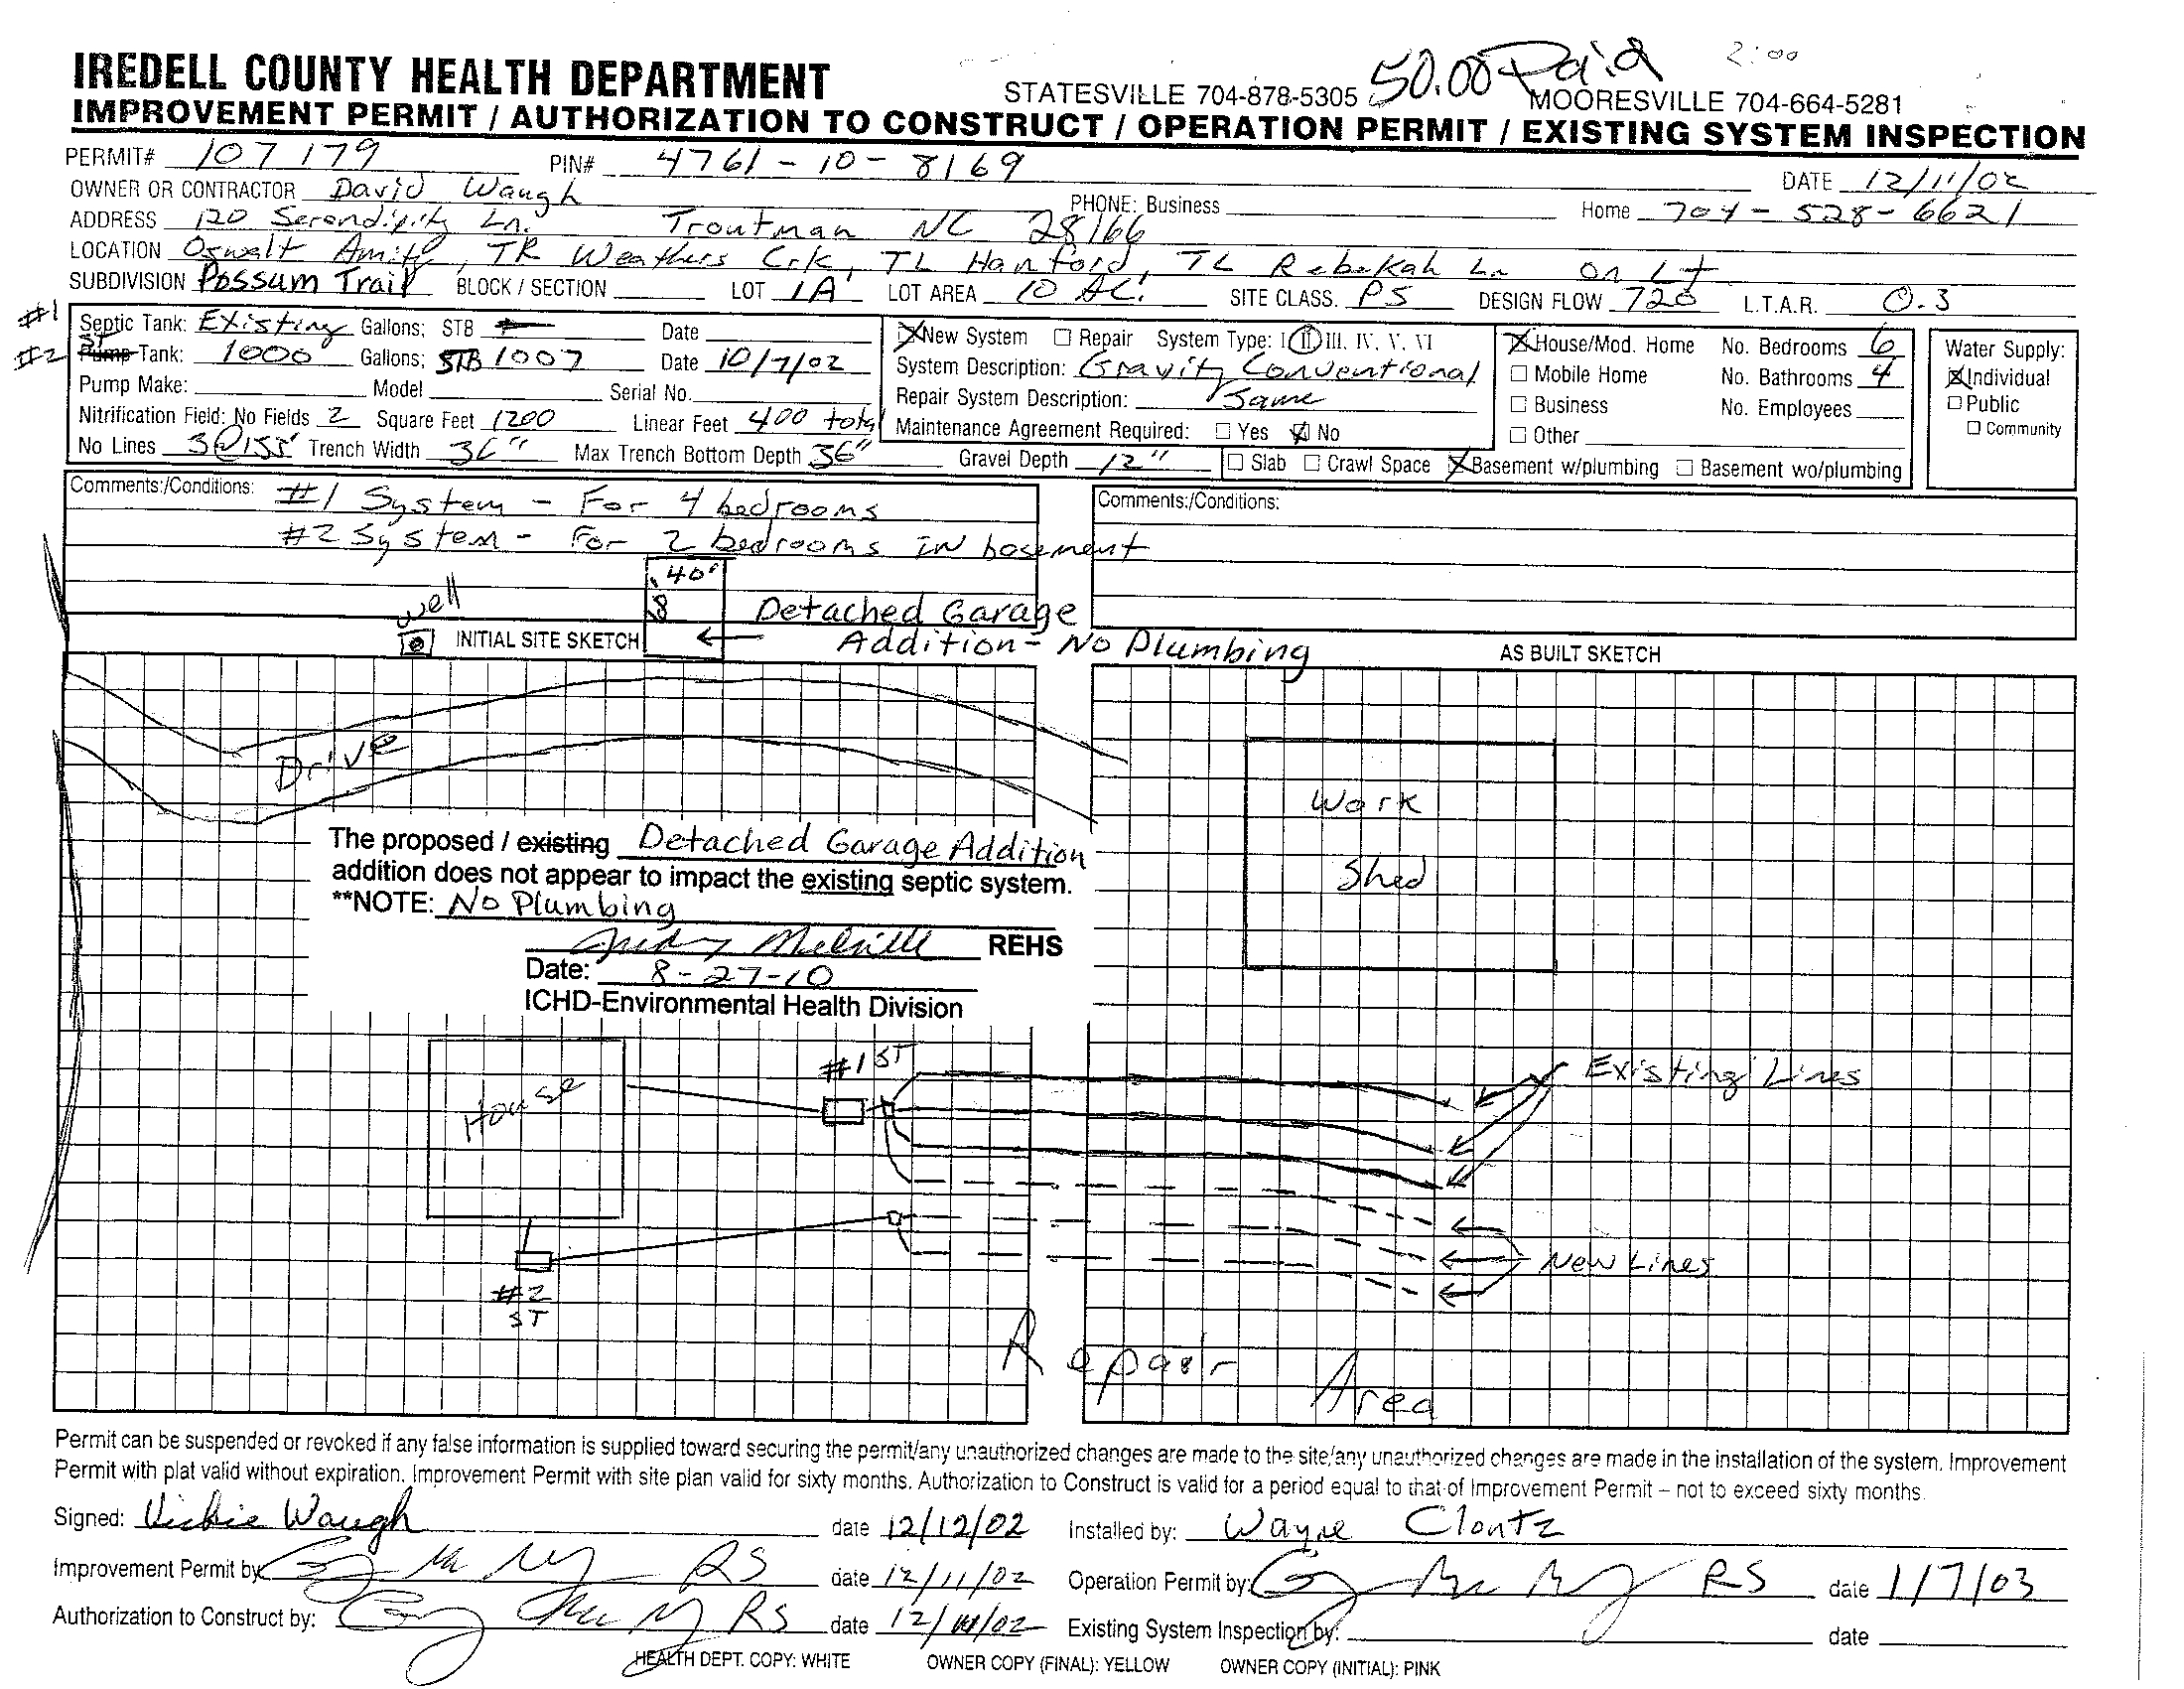 50.00 Paid 2:00
IREDELL COUNTY HEALTH DEPARTMENT STATESVILLE 704-878-5305 MOORESVILLE 704-664-5281
IMPROVEMENT PERMIT / AUTHORIZATION TO CONSTRUCT / OPERATION PERMIT / EXISTING SYSTEM INSPECTION
PERMIT# 107179 PIN# 4761-10-8169 DATE 12/11/02
OWNER OR CONTRACTOR David Waugh PHONE: Business Home 704-528-6621
ADDRESS 120 Serendipity Ln. Troutman NC 28166
LOCATION Oswalt Amity, TR Weathers Crk, TL Hanford, TL Rebekah Ln on Lt
SUBDIVISION Possum Trail BLOCK / SECTION LOT 1A LOT AREA 10 AC. SITE CLASS. PS DESIGN FLOW 720 L.T.A.R. 0.3
#1 Septic Tank: Existing Gallons; STB Date
#2 Pump Tank: ST 1000 Gallons; STB 1007 Date 10/7/02
Pump Make: Model Serial No.
Nitrification Field: No Fields 2 Square Feet 1200 Linear Feet 400 total
No Lines 3@133' Trench Width 36" Max Trench Bottom Depth 36" Gravel Depth 12"
New System Repair System Type: I II III, IV, V, VI
System Description: Gravity Conventional
Repair System Description: Same
Maintenance Agreement Required: Yes No
House/Mod. Home No. Bedrooms 6
Mobile Home No. Bathrooms 4
Business No. Employees
Other
Slab Crawl Space Basement w/plumbing Basement wo/plumbing
Water Supply:
Individual
Public
Community
Comments:/Conditions: #1 System - For 4 bedrooms
#2 System - For 2 bedrooms in basement
Comments:/Conditions:
40'
18'
Well
Detached Garage
Addition - No Plumbing
INITIAL SITE SKETCH
AS BUILT SKETCH
Drive
Work
Shed
The proposed / existing Detached Garage Addition
addition does not appear to impact the existing septic system.
**NOTE: No Plumbing
REHS
Date: 8-27-10
ICHD-Environmental Health Division
House
#1 ST
Existing Lines
New Lines
#2
ST
Repair Area
Permit can be suspended or revoked if any false information is supplied toward securing the permit/any unauthorized changes are made to the site/any unauthorized changes are made in the installation of the system. Improvement
Permit with plat valid without expiration. Improvement Permit with site plan valid for sixty months. Authorization to Construct is valid for a period equal to that of Improvement Permit – not to exceed sixty months.
Signed: Vickie Waugh date 12/12/02 Installed by: Wayne Clontz
Improvement Permit by: RS date 12/11/02 Operation Permit by: RS date 1/7/03
Authorization to Construct by: RS date Existing System Inspection by: date
HEALTH DEPT. COPY: WHITE OWNER COPY (FINAL): YELLOW OWNER COPY (INITIAL): PINK